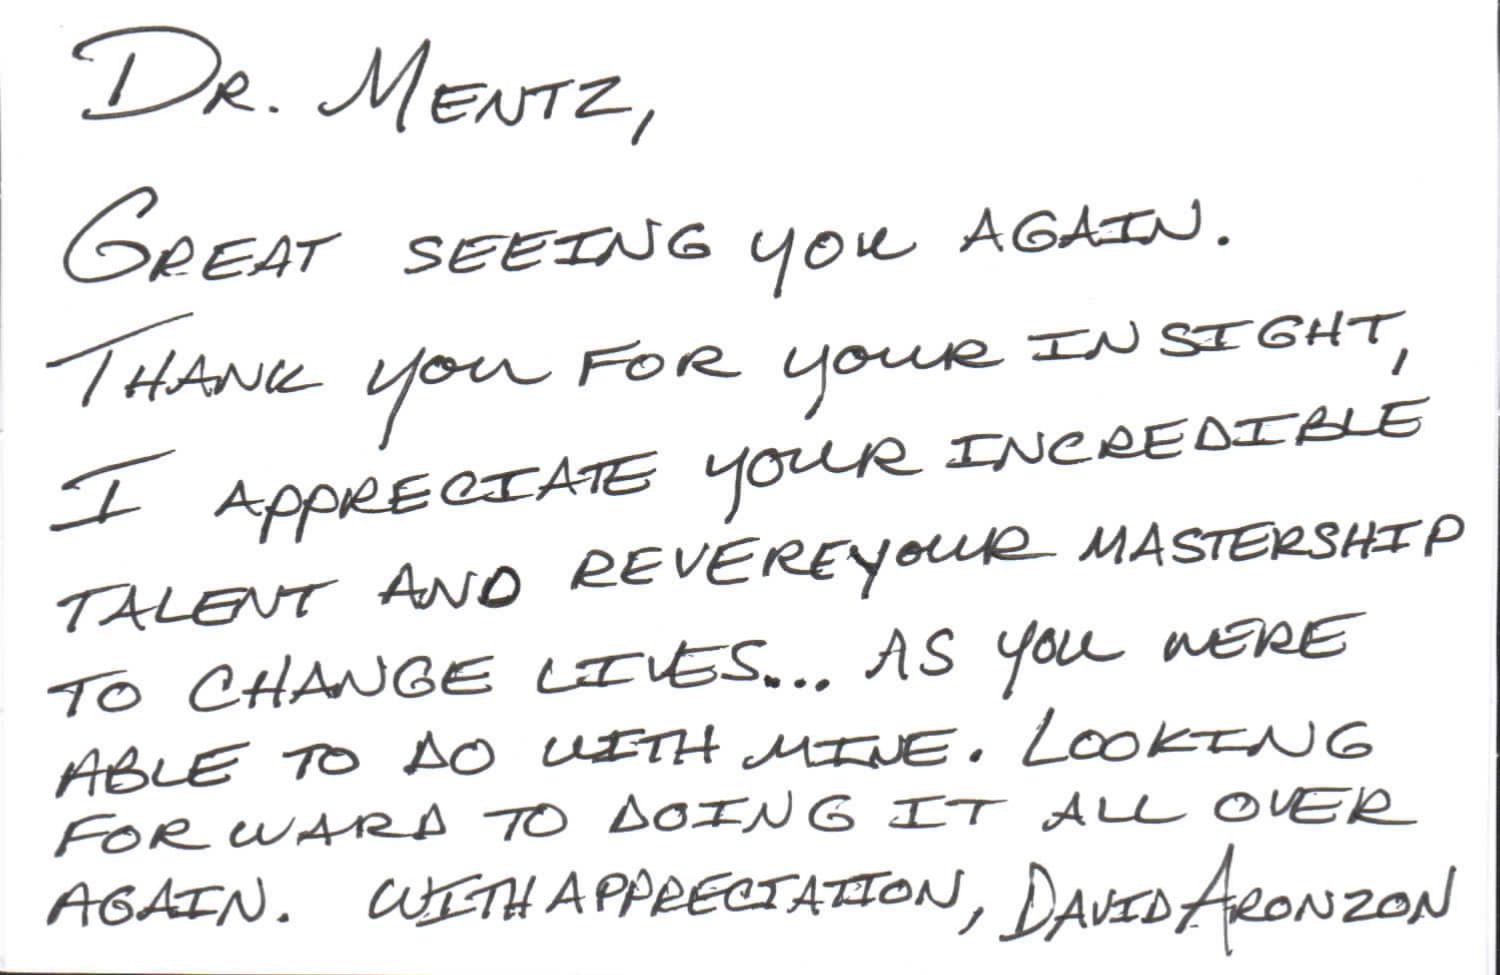 Dr. Mentz,
Great seeing you again.
Thank you for your insight,
I appreciate your incredible
talent and revere your mastership
to change lives... As you were
able to do with mine. Looking
forward to doing it all over
again. With appreciation, David Aronzon